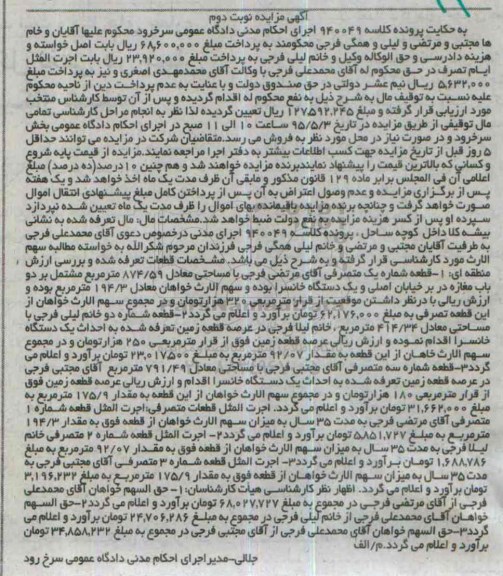 آگهی مزایده نوبت دوم
به حکایت پرونده کلاسه ۹۴۰۰۴۹ اجرای احکام مدنی دادگاه عمومی سرخرود محکوم علیها آقایان و خانم
ها مجتبی و مرتضی و لیلی و همگی فرجی محکومند به پرداخت مبلغ ۶۸,۶۰۰,۰۰۰ ریال بابت اصل خواسته و
هزینه دادرسی و حق الوکاله وکیل و خانم لیلی فرجی به پرداخت مبلغ ۲۳,۹۲۰,۰۰۰ ریال بابت اجرت المثل
ایام تصرف در حق محکوم له آقای محمدعلی فرجی با وکالت آقای محمدمهدی اصغری و نیز به پرداخت مبلغ
۵,۶۳۲,۰۰۰ ریال نیم عشر دولتی در حق صندوق دولت و با عنایت به عدم پرداخت دین از ناحیه محکوم
علیه نسبت به توقیف مال به شرح ذیل به نفع محکوم له اقدام گردیده و پس از آن توسط کارشناس منتخب
مورد ارزیابی قرار گرفته و مبلغ ۱۲۷۵۹۲,۲۴۵ ریال تعیین گردیده لذا نظر به انجام مراحل کارشناسی تمامی
مال توقیفی از طریق مزایده در تاریخ ۹۵/۵/۳ ساعت ۱۰ الی ۱۱ صبح در اجرای احکام مدنی دادگاه عمومی بخش
سرخرود و در صورت نیاز در محل مورد نظر به فروش می رسد. متقاضیان شرکت در مزایده می توانند حداقل
۵ روز قبل از تاریخ مزایده جهت کسب اطلاعات بیشتر به دفتر اجرا مراجعه نمایند. مزایده از قیمت پایه شروع
و کسانی که بالاترین قیمت را پیشنهاد نمایند برنده مزایده خواهند شد و هم چنین ۱۰ درصد (ده در صد) مبلغ
اعلامی آن فی المجلس برابر ماده ۱۲۹ قانون مذکور و مابقی آن ظرف مدت یک ماه اخذ خواهد شد و یک هفته
پس از برگزاری مزایده و عدم وصول اعتراض به آن پس از پرداختن کامل مبلغ پیشنهادی انتقال اموال
صورت خواهد گرفت و چنانچه برنده مزایده باقیمانده بهای اموال را ظرف مدت یک ماه تعیین شده نپردازد
سپرده او پس از کسر هزینه مزایده به نفع دولت ضبط خواهد شد. مشخصات مال: مال تعرفه شده به نشانی
بیشه کلا داخل کوچه ساحل، پرونده کلاسه ۹۴۰۰۴۹ اجرای مدنی درخصوص دعوی آقای محمدعلی فرجی
به طرفیت آقایان مجتبی و مرتضی و خانم لیلی همگی فرجی فرزندان مرحوم شکرالله به خواسته مطالبه سهم
الارث مورد کارشناسی قرار گرفته و به شرح ذیل می باشد. مشخصات قطعات تعرفه شده و بررسی ارزش
منطقه ای: ۱-قطعه شماره یک متصرفی آقای مرتضی فرجی با مساحتی معادل ۸۷۴/۵۹ مترمربع مشتمل بر دو
باب مغازه در بر خیابان اصلی و یک دستگاه خانسرا بوده و سهم الارث خواهان معادل ۱۹۴/۳ مترمربع بوده و
ارزش ریالی با درنظر داشتن موقعیت از قرار مترمربعی ۳۲۰ هزارتومان و در مجموع سهم الارث خواهان از
این قطعه تصرفی به مبلغ ۶۲,۱۷۶,۰۰۰ تومان برآورد و اعلام می گردد ۲-قطعه شماره دو خانم لیلی فرجی با
مساحتی معادل ۴۱۴/۳۴ مترمربع، خانم لیلا فرجی در عرصه قطعه زمین تعرفه شده به احداث یک دستگاه
خانسرا اقدام نموده و ارزش ریالی عرصه قطعه زمین فوق از قرار مترمربعی ۲۵۰ هزارتومان و در مجموع
سهم الارث خاهان از این قطعه به مقدار ۹۲/۰۷ مترمربع به مبلغ ۲۳,۰۱۷۵۰۰ تومان برآورد و اعلام می
گردد ۳-قطعه شماره سه متصرفی آقای مجتبی فرجی با مساحتی معادل ۷۹۱/۴۹ مترمربع آقای مجتبی فرجی
در عرصه قطعه زمین تعرفه شده به احداث یک دستگاه خانسرا اقدام و ارزش ریالی عرصه قطعه زمین فوق
از قرار مترمربعی ۱۸۰ هزارتومان و در مجموع سهم الارث خواهان از این قطعه به مقدار ۱۷۵/۹ مترمربع به
مبلغ ۳۱,۶۶۲,۰۰۰ تومان برآورد و اعلام می گردد. اجرت المثل قطعات متصرفی: اجرت المثل قطعه شماره ۱
متصرفی آقای مرتضی فرجی به مدت ۳۵ سال به میزان سهم الارث خواهان از قطعه فوق به مقدار ۱۹۴/۳
مترمربع به مبلغ ۵,۸۵۱,۷۲۷ تومان برآورد و اعلام می گردد ۲- اجرت المثل قطعه شماره ۲ متصرفی خانم
لیلا فرجی به مدت ۳۵ سال به میزان سهم الارث خواهان از قطعه فوق به مقدار ۹۲/۰۷ مترمربع به مبلغ
۱,۶۸۸,۷۸۶ تومان برآورد و اعلام می گردد ۳- اجرت المثل قطعه شماره ۳ متصرفی آقای مجتبی فرجی به
مدت ۳۵ سال به میزان سهم الارث خواهان از قطعه فوق به مقدار ۱۷۵/۹ مترمربع به مبلغ ۳,۱۹۶,۲۳۲
تومان برآورد و اعلام می گردد. اظهار نظر کارشناسی هیات کارشناسان: ۱- حق السهم خواهان آقای محمدعلی
فرجی از آقای مرتضی فرجی در مجموع به مبلغ ۶۸,۰۲۷,۷۲۷ تومان برآورد و اعلام می گردد ۲-حق السهم
خواهان آقای محمدعلی فرجی از خانم لیلی فرجی در مجموع به مبلغ ۲۴,۷۰۶,۲۸۶ تومان برآورد و اعلام می
گردد ۳-حق السهم خواهان آقای محمدعلی فرجی از آقای مجتبی فرجی در مجموع به مبلغ ۳۴,۸۵۸,۲۳۲ تومان
برآورد و اعلام می گردد. م/الف
جلالی-مدیر اجرای احکام مدنی دادگاه عمومی سرخ رود